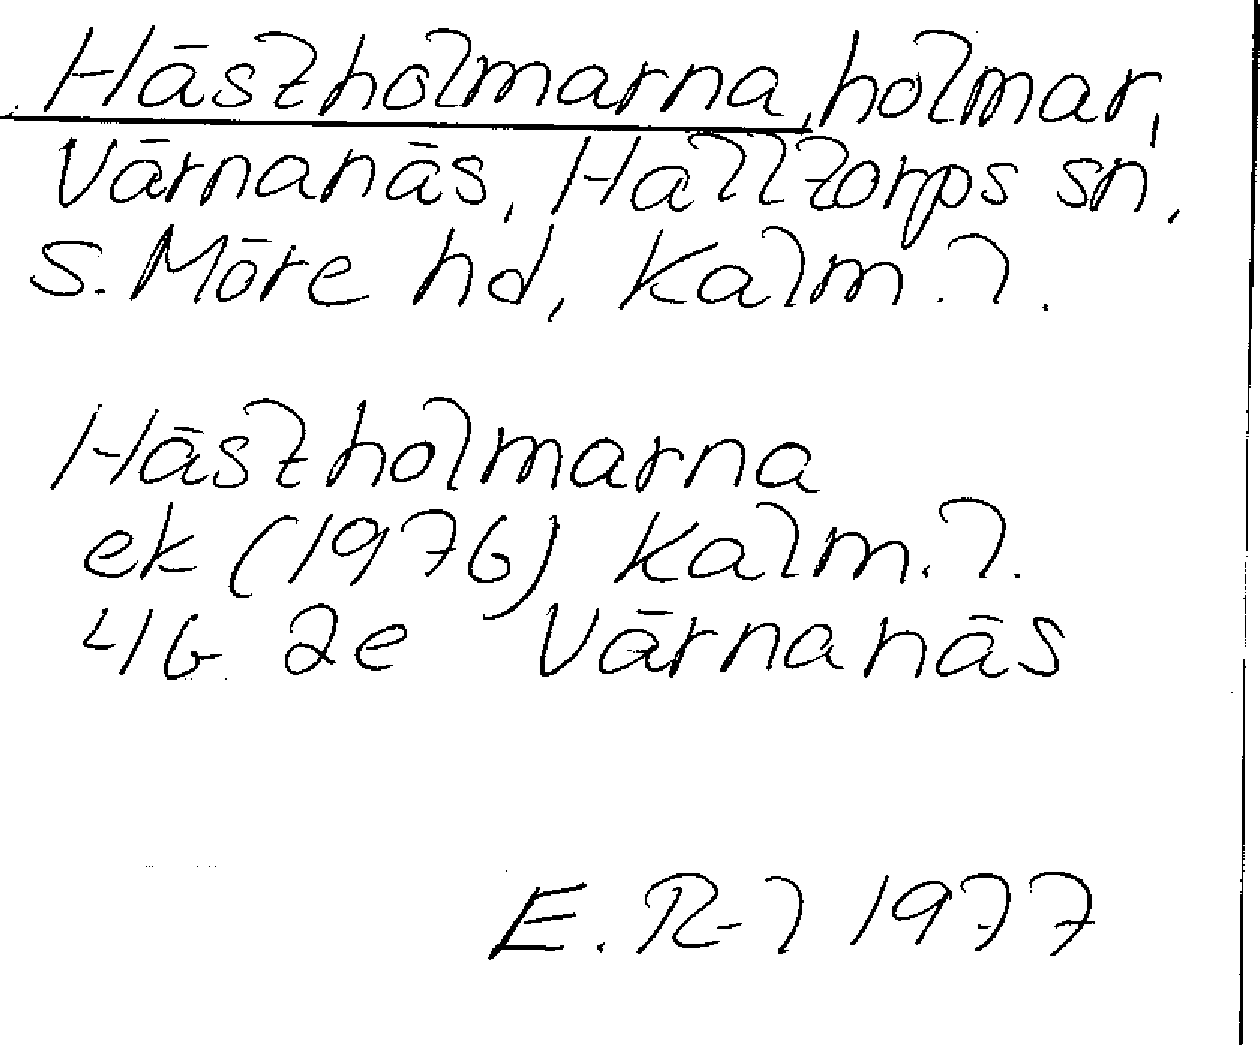 Hästholmarna, holmar,
Värnanäs, Halltorps sn,
S. Möre hd, Kalm. l.
Hästholmarna
ek (1976) Kalm. l.
4G 2e Värnanäs
E. R-l 1977